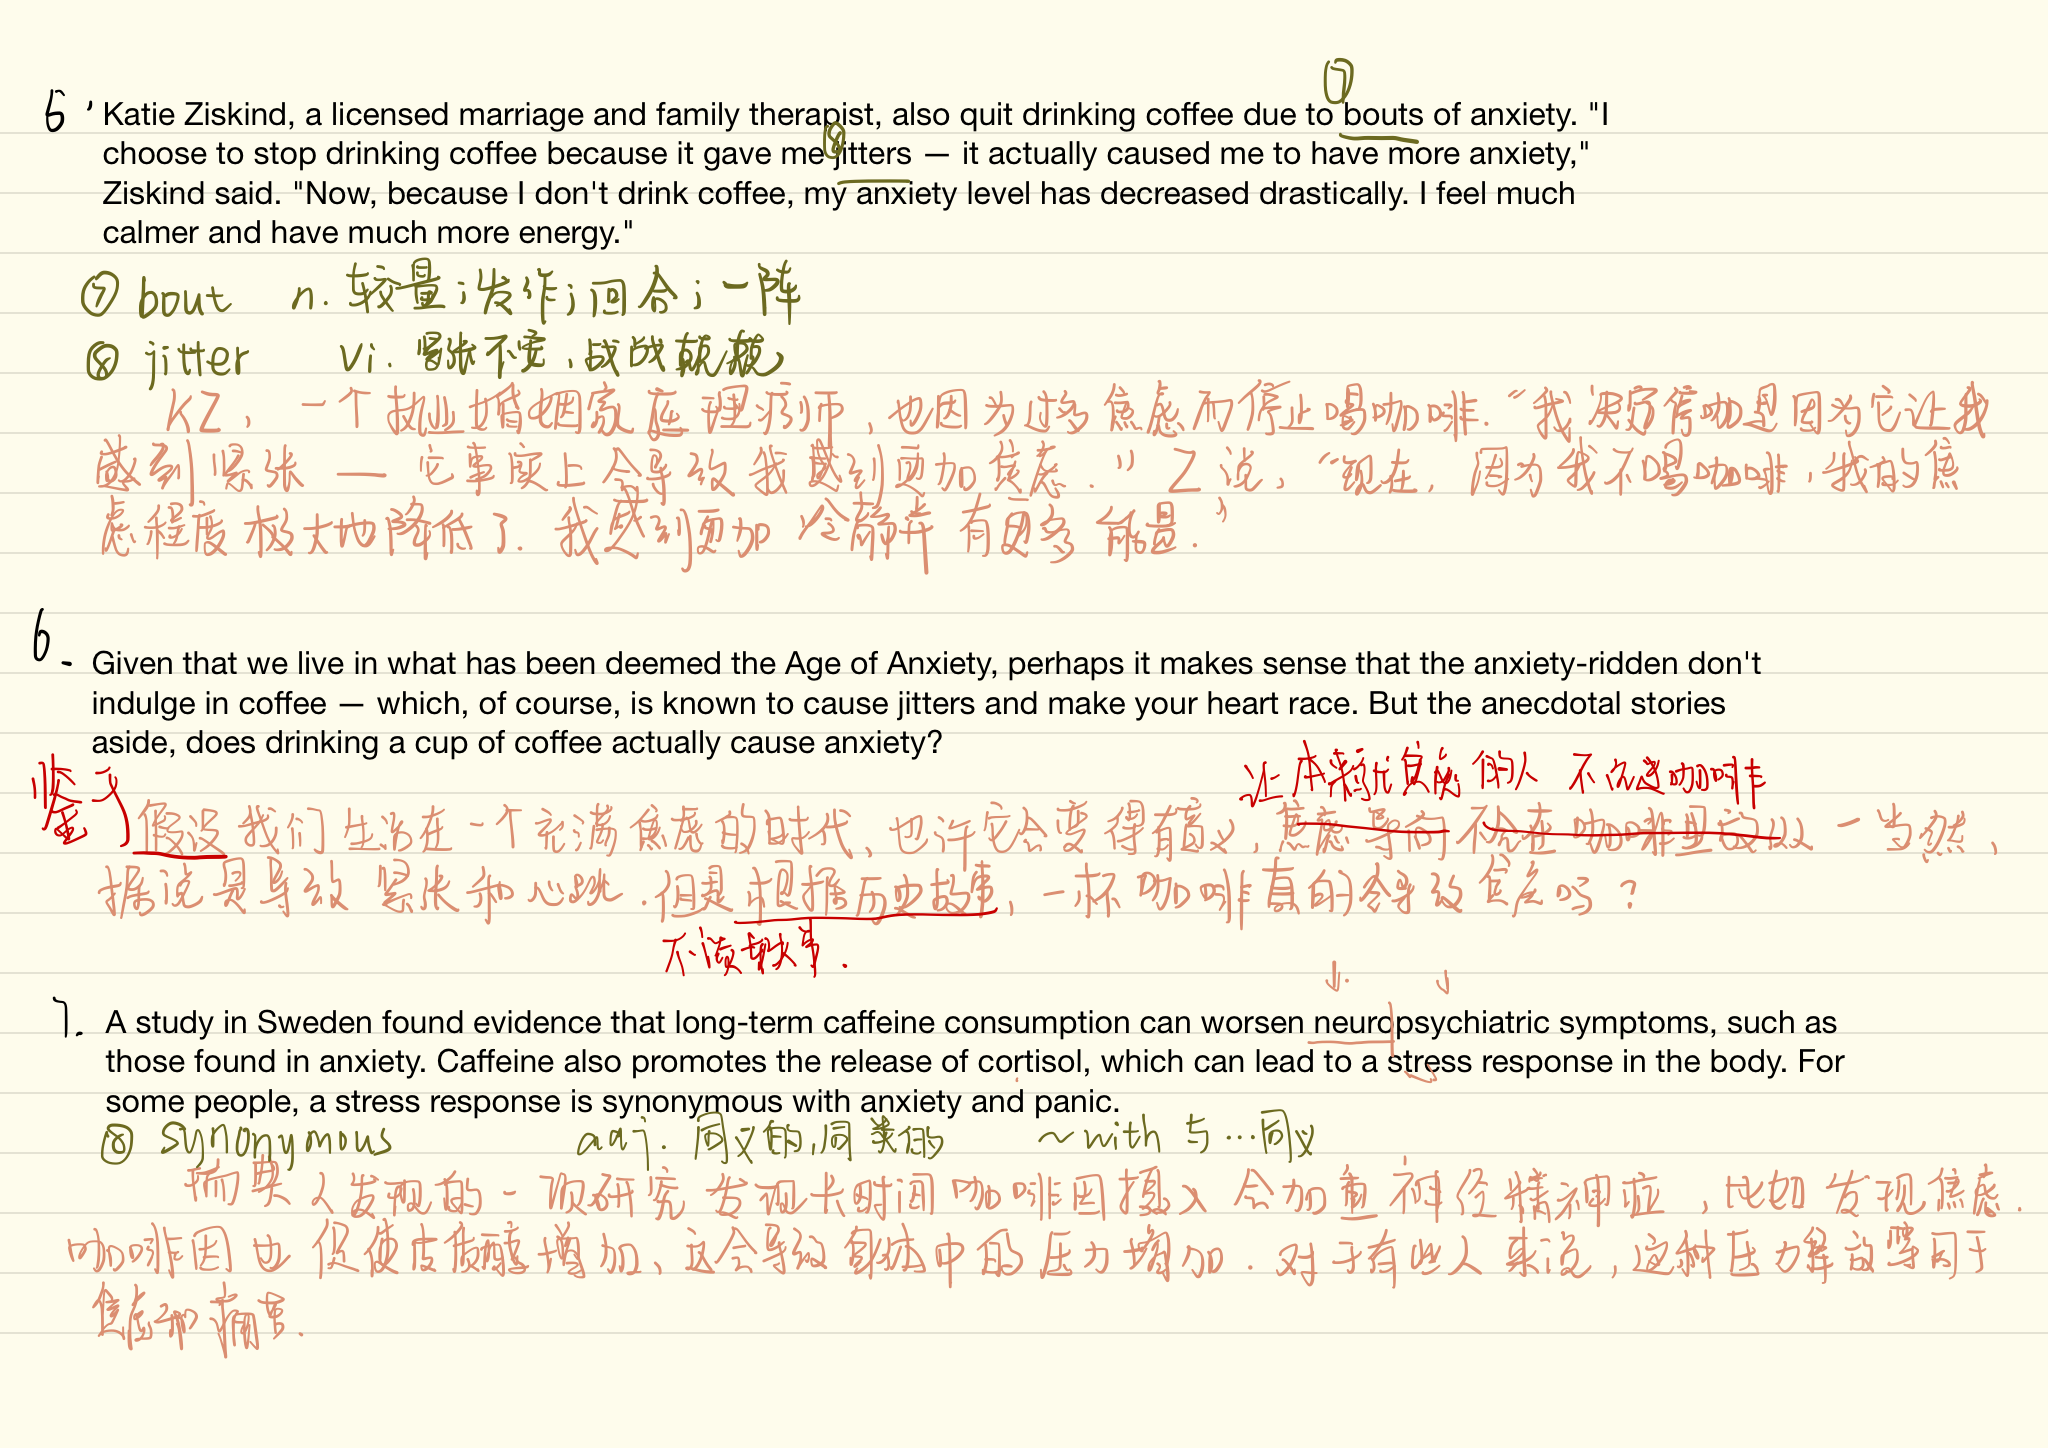 ⑦
5、Katie Ziskind, a licensed marriage and family therapist, also quit drinking coffee due to bouts of anxiety. "I
⑧
choose to stop drinking coffee because it gave me jitters — it actually caused me to have more anxiety,"
Ziskind said. "Now, because I don't drink coffee, my anxiety level has decreased drastically. I feel much
calmer and have much more energy."
⑦ bout n. 较量；发作；回合；一阵
⑧ jitter vi. 紧张不安，战战兢兢
KZ，一个执业婚姻家庭理疗师，也因为过多焦虑而停止喝咖啡."我决定停咖是因为它让我
感到紧张 — 它事实上会导致我感到更加焦虑." Z说，"现在，因为我不喝咖啡，我的焦
虑程度极大地降低了.我感到更加冷静并有更多能量."
6. Given that we live in what has been deemed the Age of Anxiety, perhaps it makes sense that the anxiety-ridden don't
indulge in coffee — which, of course, is known to cause jitters and make your heart race. But the anecdotal stories
aside, does drinking a cup of coffee actually cause anxiety?
让本来就焦虑的人 不沉迷咖啡
鉴于
假设我们生活在一个充满焦虑的时代、也许它会变得有意义，焦虑导向不会在咖啡里放以 — 当然，
据说是导致紧张和心跳.但是根据历史故事，一杯咖啡真的会导致焦虑吗？
不谈轶事.
7. A study in Sweden found evidence that long-term caffeine consumption can worsen neuropsychiatric symptoms, such as
those found in anxiety. Caffeine also promotes the release of cortisol, which can lead to a stress response in the body. For
some people, a stress response is synonymous with anxiety and panic.
⑧ synonymous adj. 同义的，同类的 ~with 与…同义
瑞典人发现的一项研究发现长时间咖啡因摄入会加重神经精神症，比如发现焦虑.
咖啡因也促使皮质醇增加、这会导致身体中的压力增加.对于有些人来说，这种压力释放等同于
焦虑和痛苦.